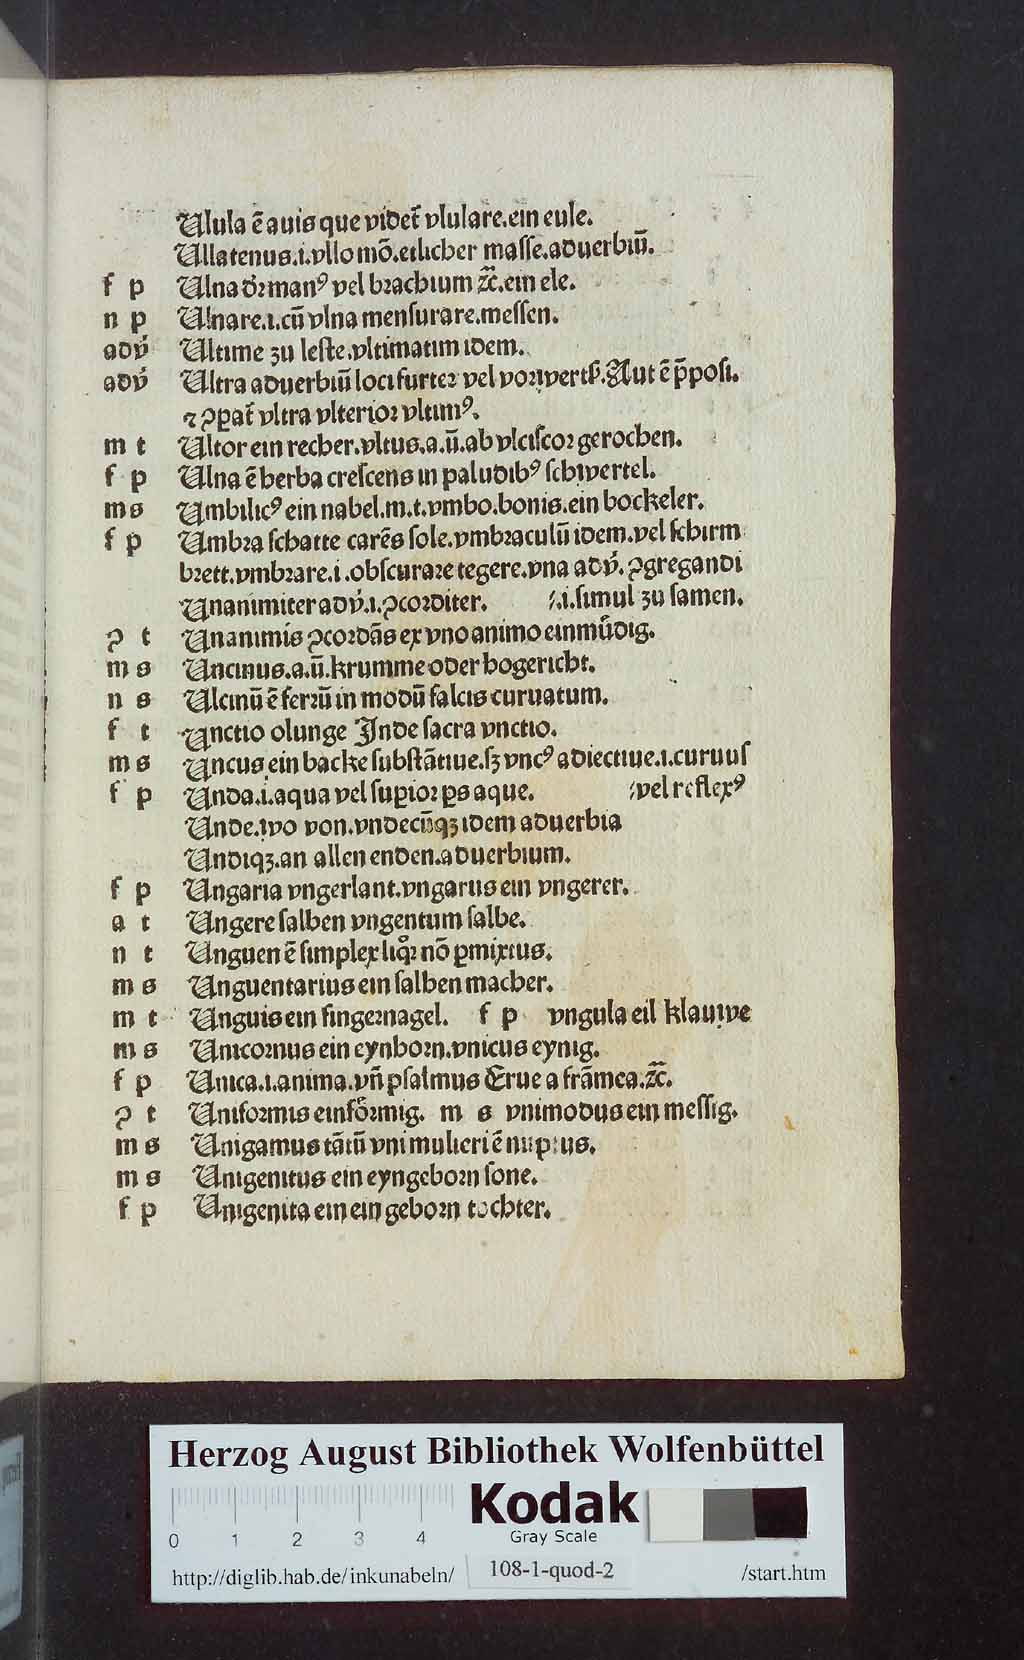 Ulula ē auis que videt̄ vlulare.ein eule.
Ullatenus.i.vllo mō.etlicher masse.aduerbiū.
f p Ulna dr̄ manꝰ vel brachium ꝛc̄.ein ele.
n p Ulnare.i.cū vlna mensurare.messen.
adv̄ Ultime zu leste.vltimatim idem.
adv̄ Ultra aduerbiū loci furter vel vorwertꝭ.Aut ē p̄posi.
⁊ ꝯꝑat̄ vltra vlterior vltimꝰ.
m t Ultor ein recher.vltus.a.ū.ab vlciscor gerochen.
f p Ulna ē herba crescens in paludibꝰ schwertel.
m s Umbilicꝰ ein nabel.m.t.vmbo.bonis.ein bockeler.
f p Umbra schatte carēs sole.vmbraculū idem.vel schirm
brett.vmbrare.i.obscurare tegere.vna adv̄.ꝯgregandi
Unanimiter adv̄.i.ꝯcorditer. .i.simul zu samen.
ꝯ t Unanimis ꝯcordās ex vno animo einmüdig.
m s Uncinus.a.ū.krumme oder bogericht.
n s Ulcinū ē ferrū in modū falcis curuatum.
f t Unctio olunge Inde sacra vnctio.
m s Uncus ein backe substātiue.sꝫ vncꝰ adiectiue.i.curuus
f p Unda.i.aqua vel suꝑior ꝑs aque. vel reflexꝰ
Unde.wo von.vndecūqꝫ idem aduerbia
Undiqꝫ.an allen enden.aduerbium.
f p Ungaria vngerlant.vngarus ein vngerer.
a t Ungere salben vngentum salbe.
n t Unguen ē simplex liqͦr nō ꝑmixtus.
m s Unguentarius ein salben macher.
m t Unguis ein fingernagel. f p vngula eil klauwe
m s Unicornus ein eynhorn.vnicus eynig.
f p Unica.i.anima.vn̄ psalmus Erue a frāmea.ꝛc̄.
ꝯ t Uniformis einförmig. m s vnimodus ein messig.
m s Unigamus tātū vni mulieri ē nuptus.
m s Unigenitus ein eyngeborn sone.
f p Unigenita ein ein geborn tochter.
Herzog August Bibliothek Wolfenbüttel
0 1 2 3 4
Kodak
Gray Scale
http://diglib.hab.de/inkunabeln/ 108-1-quod-2 /start.htm